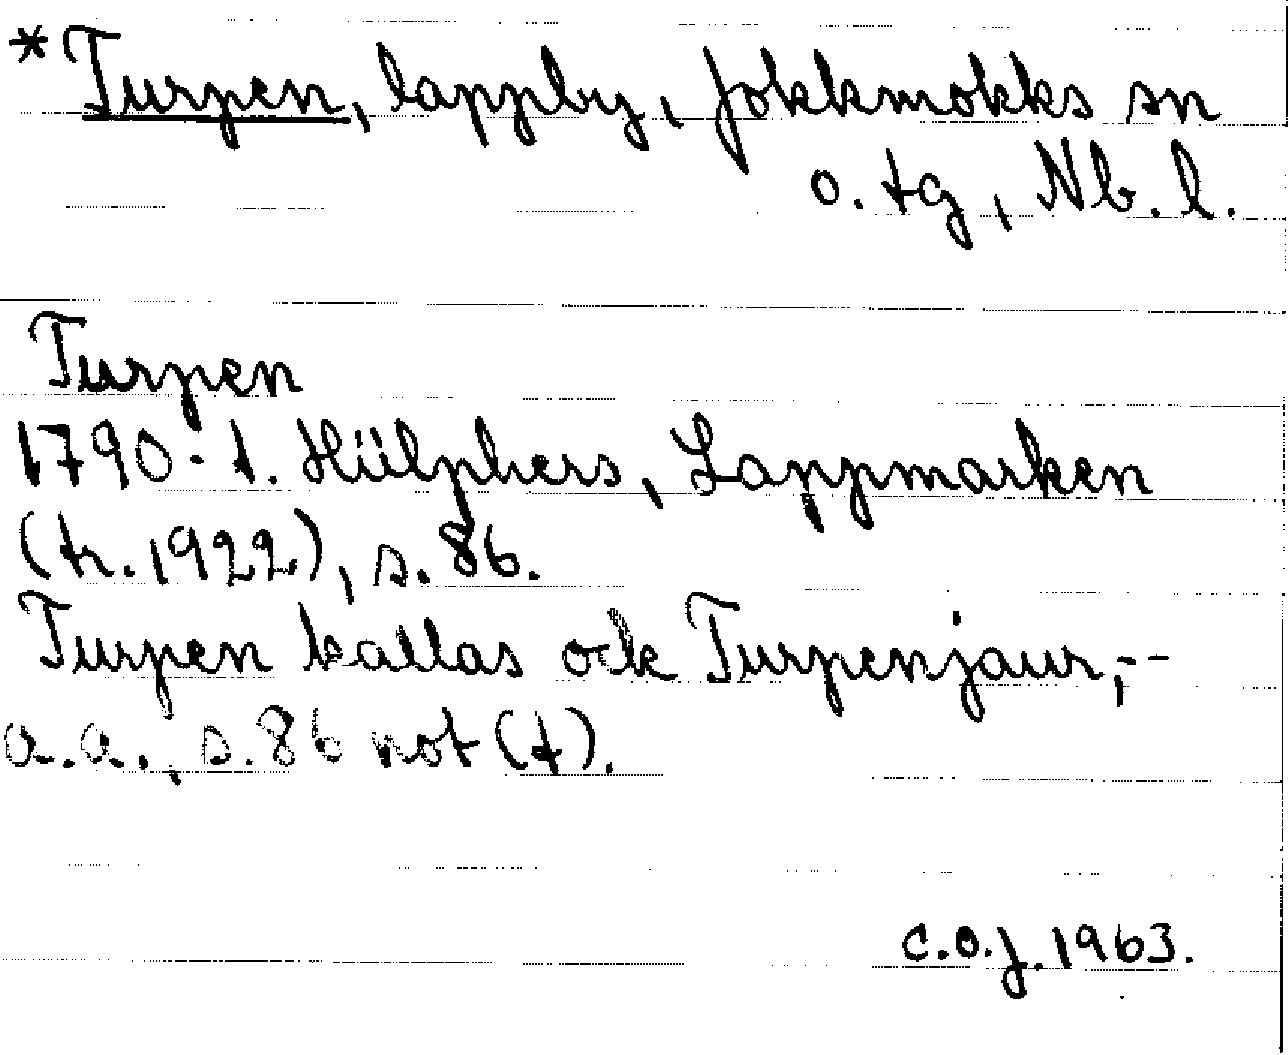 *Turpen, lappby, Jokkmokks sn
o. tg, Nb. l.
Turpen
1790-t. Hülphers, Lappmarken
(tr. 1922), s. 86.
Turpen kallas ock Turpenjaur,--
a.a., s. 86 not (t).
C.O.J. 1963.